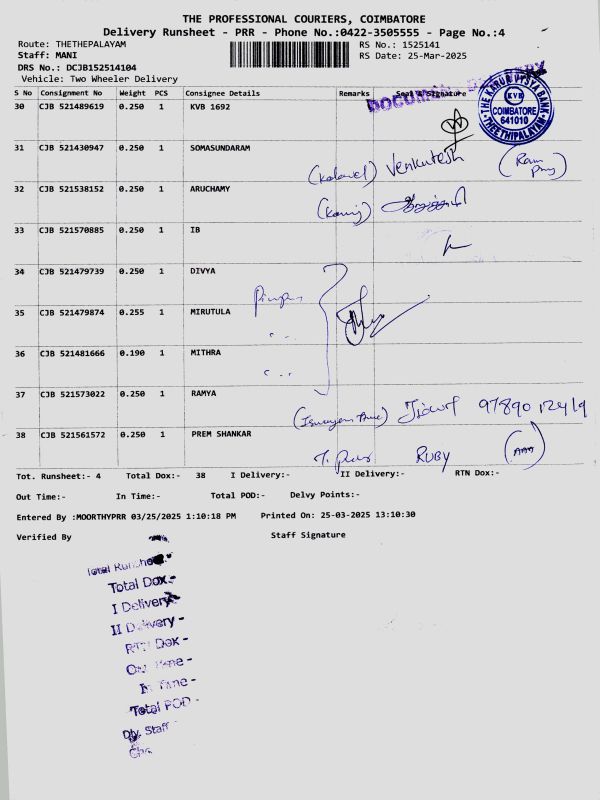 THE PROFESSIONAL COURIERS, COIMBATORE
Delivery Runsheet - PRR - Phone No.:0422-3505555 - Page No.:4
Route: THETHEPALAYAM RS No.: 1525141
Staff: MANI RS Date: 25-Mar-2025
DRS No.: DCJB152514104
Vehicle: Two Wheeler Delivery
S No Consignment No Weight PCS Consignee Details Remarks Seal & Signature
DOCUMENT DELIVERY
THE KARUR VYSYA BANK
KVB
COIMBATORE
641010
THEETHIPALAYAM
30 CJB 521489619 0.250 1 KVB 1692
31 CJB 521430947 0.250 1 SOMASUNDARAM
Venkutesh
32 CJB 521538152 0.250 1 ARUCHAMY
33 CJB 521570885 0.250 1 IB
34 CJB 521479739 0.250 1 DIVYA
35 CJB 521479874 0.255 1 MIRUTULA
36 CJB 521481666 0.190 1 MITHRA
37 CJB 521573022 0.250 1 RAMYA
97890 12419
38 CJB 521561572 0.250 1 PREM SHANKAR
RUBY
Tot. Runsheet:- 4 Total Dox:- 38 I Delivery:- II Delivery:- RTN Dox:-
Out Time:- In Time:- Total POD:- Delvy Points:-
Entered By :MOORTHYPRR 03/25/2025 1:10:18 PM Printed On: 25-03-2025 13:10:30
Verified By Staff Signature
Total Runsheet:-
Total Dox:-
I Delivery:-
II Delivery -
RTN Dox -
Out Time -
In Time -
Total POD -
Dly. Staff -